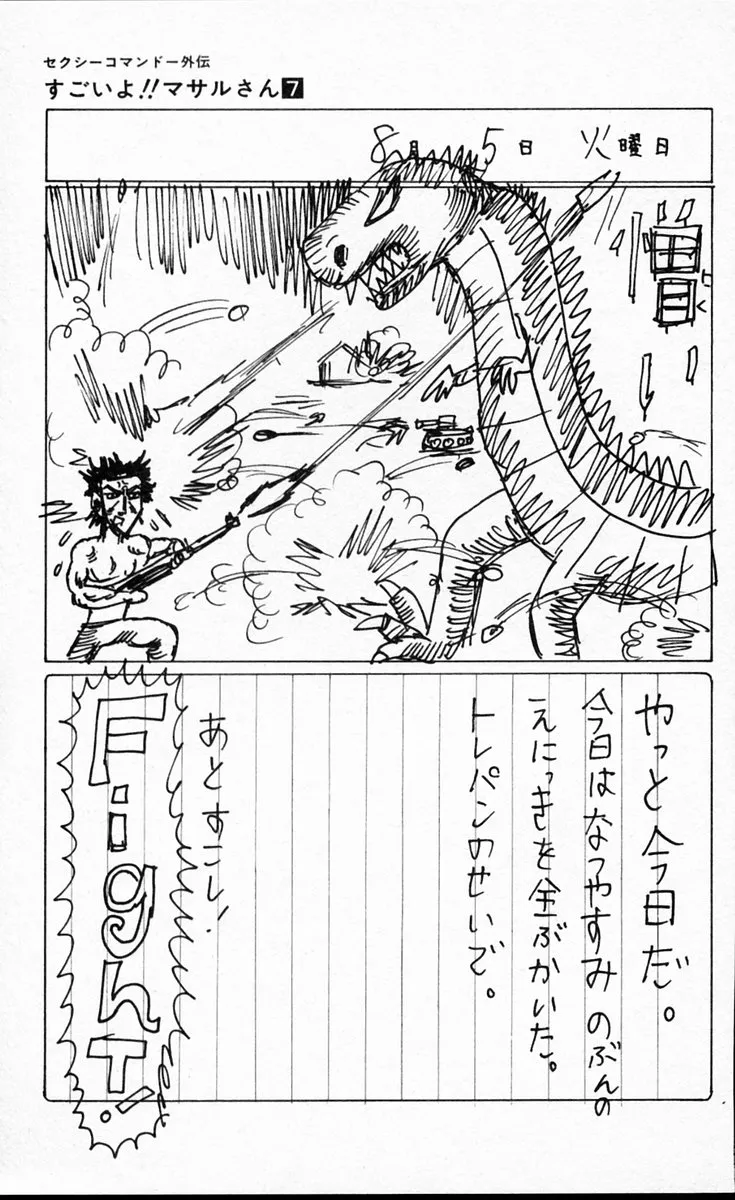 セクシーコマンドー外伝
すごいよ!!マサルさん7
8月5日 火曜日
やっと今日だ。
今日はなつやすみのぶんの
えにっきを全ぶかいた。
トレパンのせいで。
あとすこし!
FighT!